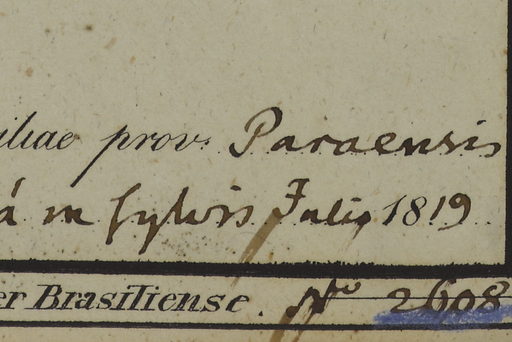 iliae prov. Paraensis
á in sylvis Julio 1819
er Brasiliense. No 2608